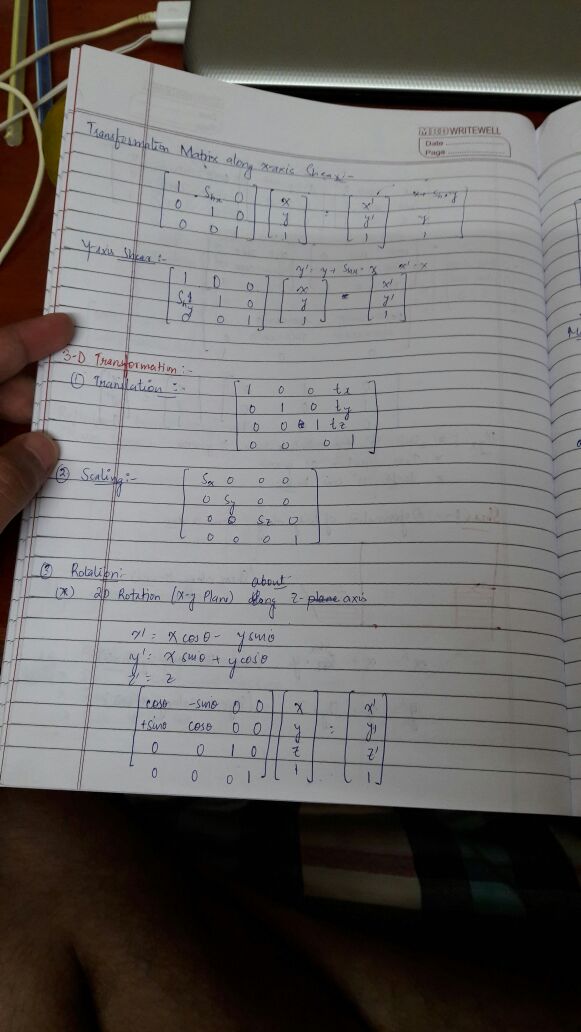 MICRO WRITEWELL
Date
Page
Transformation Matrix along x-axis Shear:-
1 Shx 0 x x' x + Shx y
0 1 0 y = y' y
0 0 1 1 1 1
Y-axis Shear:-
y' = y + Shx · x x' = x
1 0 0 x x'
Shy 1 0 y = y'
0 0 1 1 1
3-D Transformation:-
① Translation:-
1 0 0 tx
0 1 0 ty
0 0 1 tz
0 0 0 1
② Scaling:-
Sx 0 0 0
0 Sy 0 0
0 0 Sz 0
0 0 0 1
③ Rotation:
(*) 2D Rotation (x-y Plane) about z-plane axis
x' = x cosθ - y sinθ
y' = x sinθ + y cosθ
z' = z
cosθ -sinθ 0 0 x x'
+sinθ cosθ 0 0 y = y'
0 0 1 0 z z'
0 0 0 1 1 1